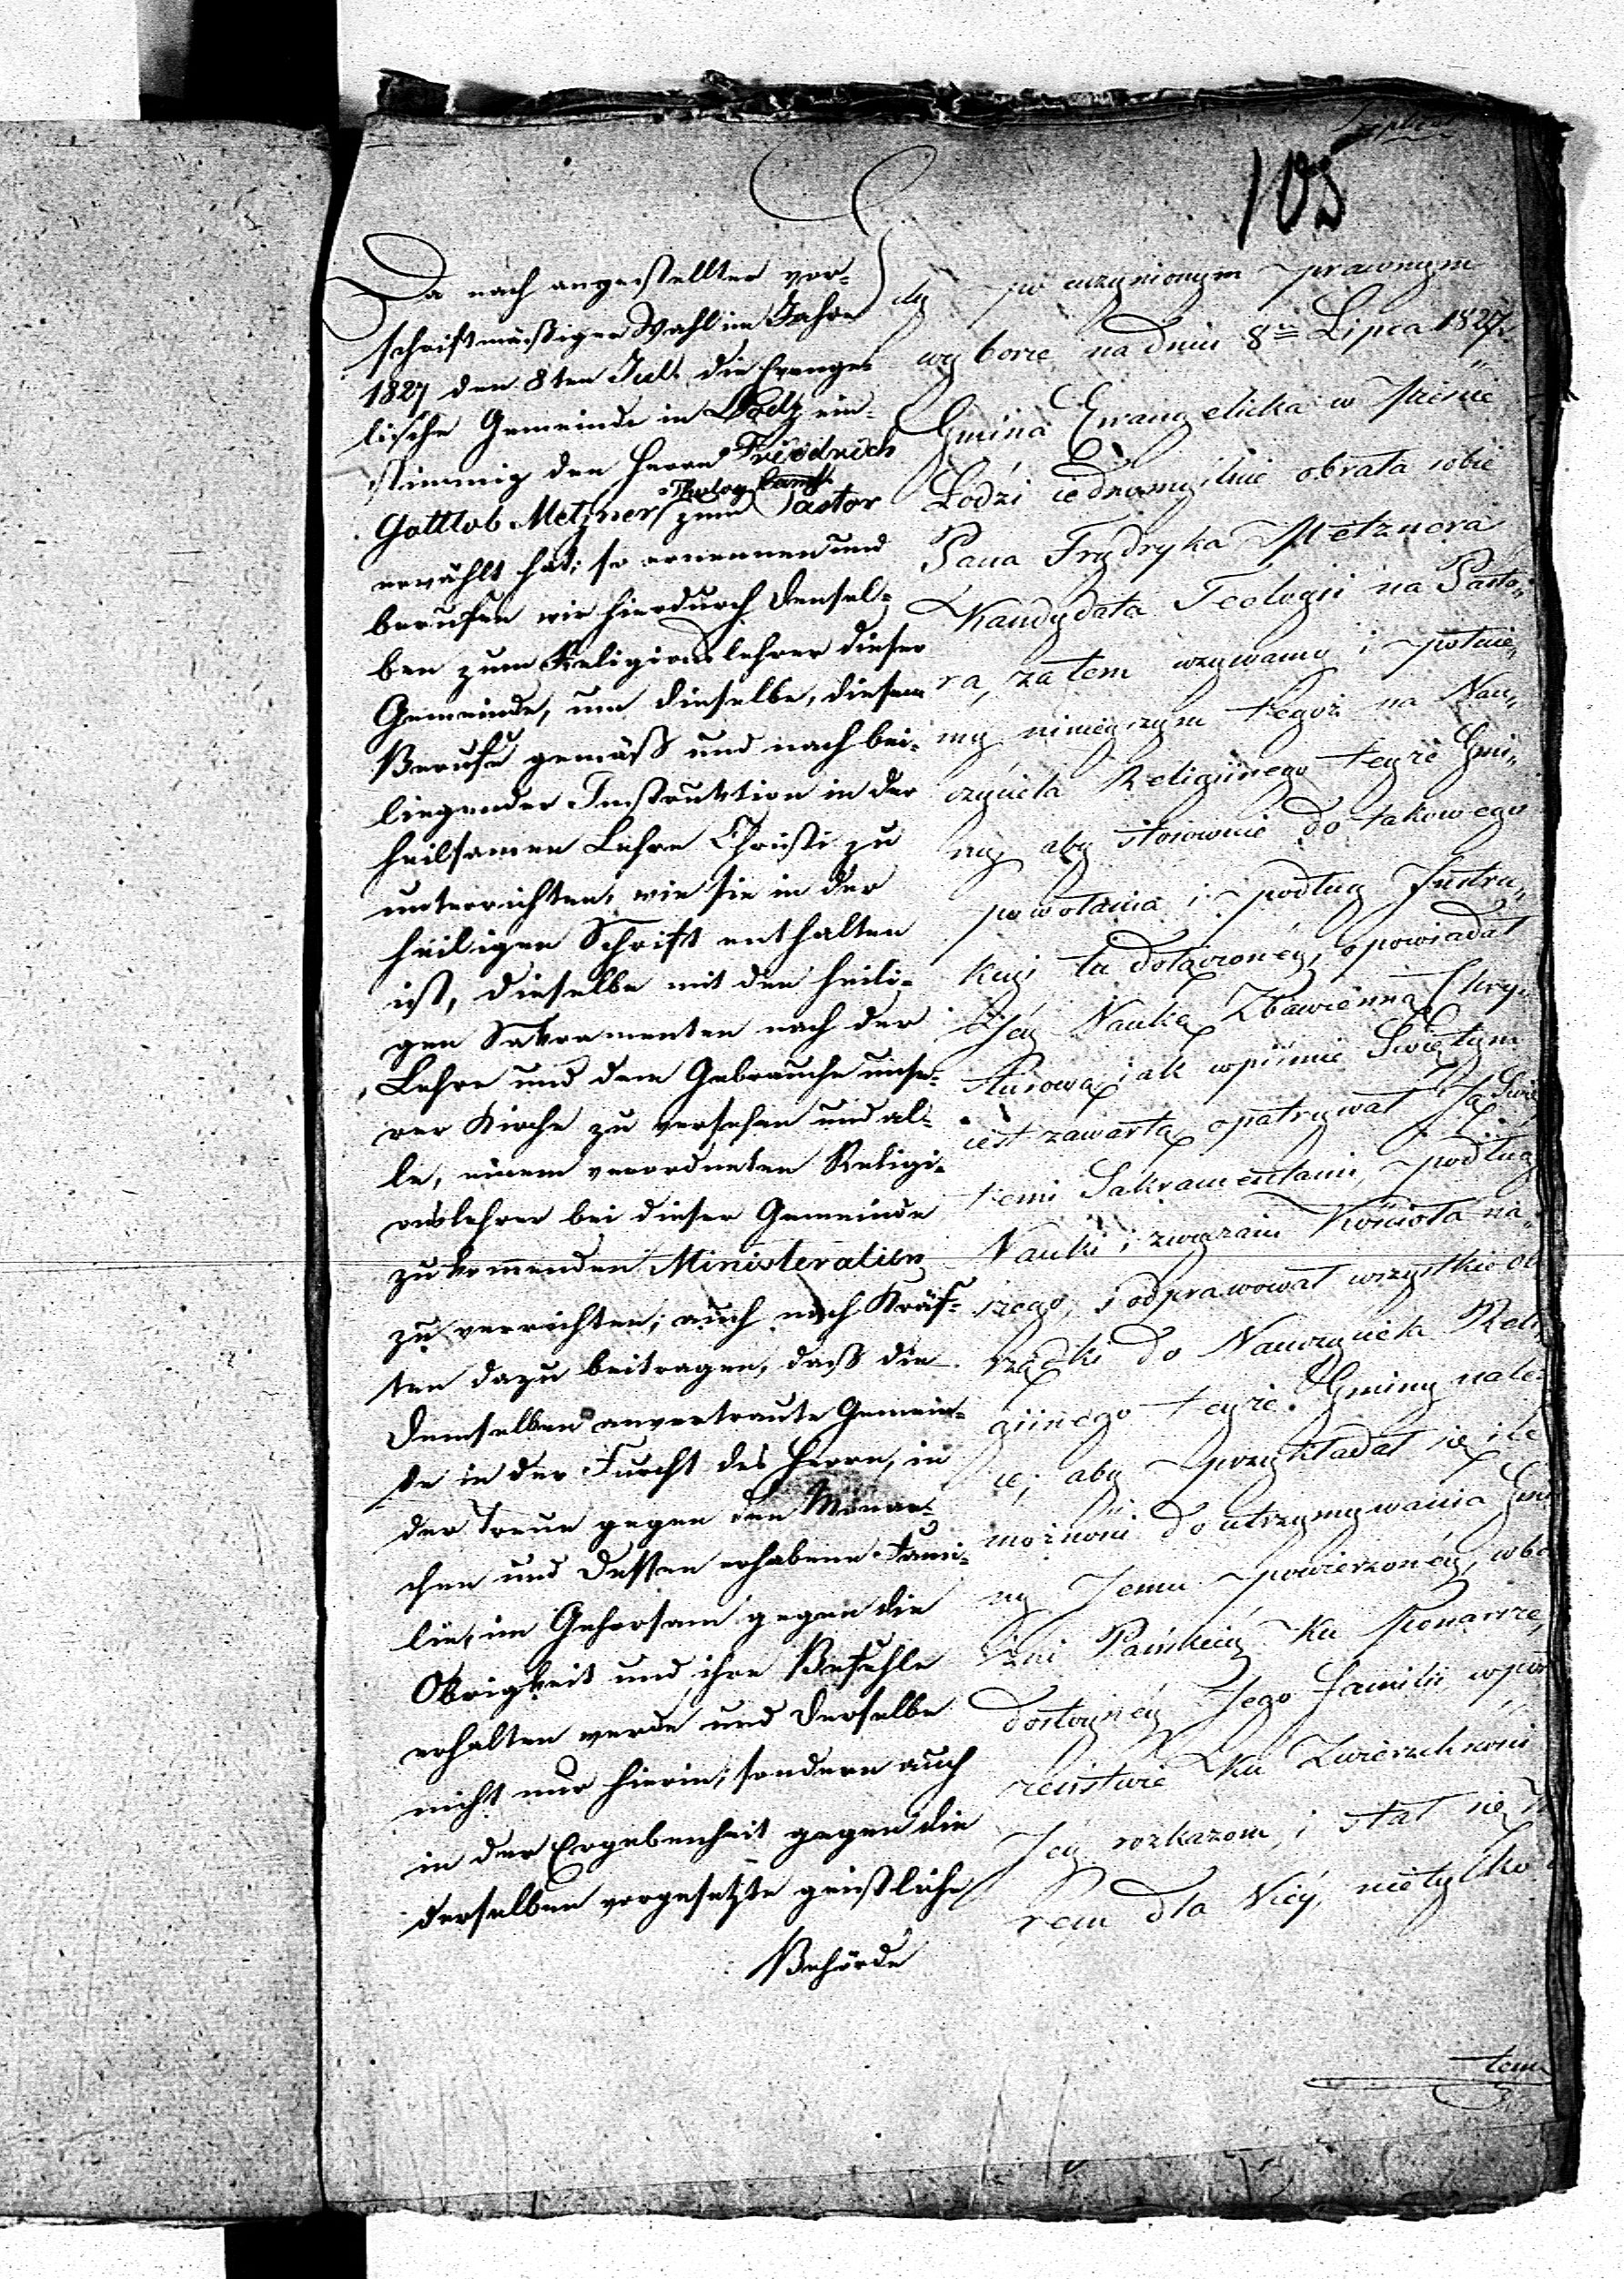 105
Da nach angestellter vor-
schriftmäßiger Wahl im Jahre
1827 den 8ten Juli die Evange-
lische Gemeinde in Lodz ein-
stimmig den Herrn Friedrich
Theolog. Cand.
Gottlob Metzner zum Pastor
erwählt hat; so ernennen und
berufen wir hierdurch densel-
ben zum Religionslehrer dieser
Gemeinde, um dieselbe, diesem
Berufe gemäß und nach bei-
liegender Instruktion in der
heilsamen Lehre Christi zu
unterrichten, wie sie in der
heiligen Schrift enthalten
ist, dieselbe mit den heili-
gen Sakramenten nach der
Lehre und dem Gebrauche unse-
rer Kirche zu versehen und al-
le, einem verordneten Religi-
onslehrer bei dieser Gemeinde
zukommenden Ministeralien
zu verrichten; auch nach Kräf-
ten dazu beitragen, daß die
demselben anvertraute Gemein-
de in der Furcht des Herrn, in
der Treue gegen den Monar-
chen und dessen erhabene Fami-
lie, im Gehorsam gegen die
Obrigkeit und ihre Befehle
erhalten werde und derselbe
nicht nur hierin, sondern auch
in der Ergebenheit gegen die
derselben vorgesetzte geistliche
Behörde
Gdy po uczynionym prawnym
wyborze na dniu 8m Lipca 1827.
Gmina Ewangelicka w Mieście
Łodzi iednomyślnie obrała sobie
Pana Frydryka Metznera
Kandydata Teologii na Pasto-
ra, zatem wzywamy i
my ninieyszym tegoż na Nau-
czyciela Religiinego teyże Gmi-
ny, aby stosownie do takowego
powołania i podług Instru-
kcyi tu dołączonéy, opowiadał
Jéy Naukę Zbawienną Chry-
stusową, iak w piśmie Świętym
iest zawarta, opatrywał Ją Świę
temi Sakramentami, podług
Nauki i zwyczaiu Kościoła na-
szego, i odprawował wszystkie ob
rządki do Nauczyciela Reli
giinego teyże Gminy należą
ce; aby przykładał się ile
możności do utrzymywania Gmi
ny Jemu powierzonéy, w bo
iaźni Pańskiéy ku Monarsze,
dostoynéy Jego Familii, w po
szeństwie ku Zwierzchności
Jéy rozkazom, i stał się
rem dla Niéy, nie tylko
temu